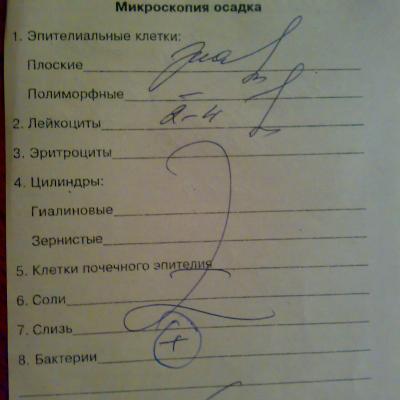 Микроскопия осадка
1. Эпителиальные клетки:
Плоские
Полиморфные –
2. Лейкоциты 2-4
3. Эритроциты
4. Цилиндры:
Гиалиновые
Зернистые
5. Клетки почечного эпителия
6. Соли
7. Слизь
8. Бактерии +